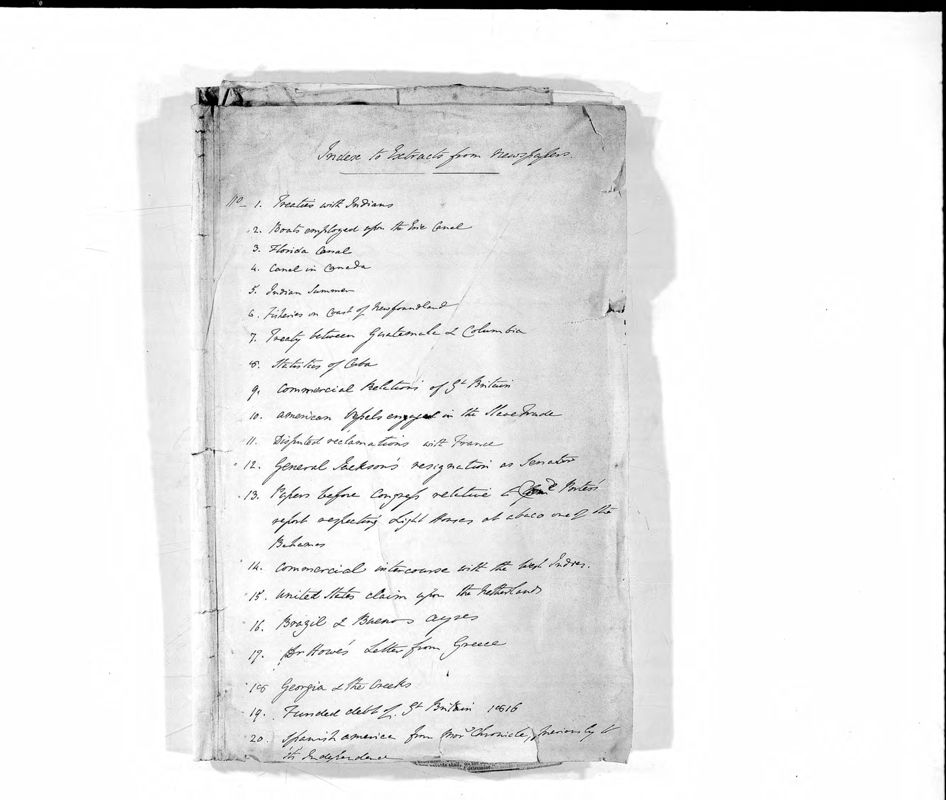 Index to Extracts from Newspapers.
1. Treaties with Indians
2. Boats employed upon the Erie Canal
3. Florida Canal
4. Canal in Canada
5. Indian Summer
6. Fisheries on Coast of Newfoundland
7. Treaty between Guatemala & Columbia
8. Statistics of Cuba
9. Commercial Relations of Gt Britain
10. American Vessels engaged in the Slave Trade
11. Disputed reclamations with France
12. General Jackson's resignation as Senator
13. Papers before Congress relative to Comd Porter's
report respecting Light Houses at abaco one of the
Bahamas
14. Commercial intercourse with the West Indies.
15. United States claim upon the Netherlands
16. Brazil & Buenos Ayres
17. Dr Howe's Letter from Greece
18 Georgia & the Creeks
19. Funded debt of Gt Britain 1816
20. Spanish America from Morg Chronicle, previously to
its Independence